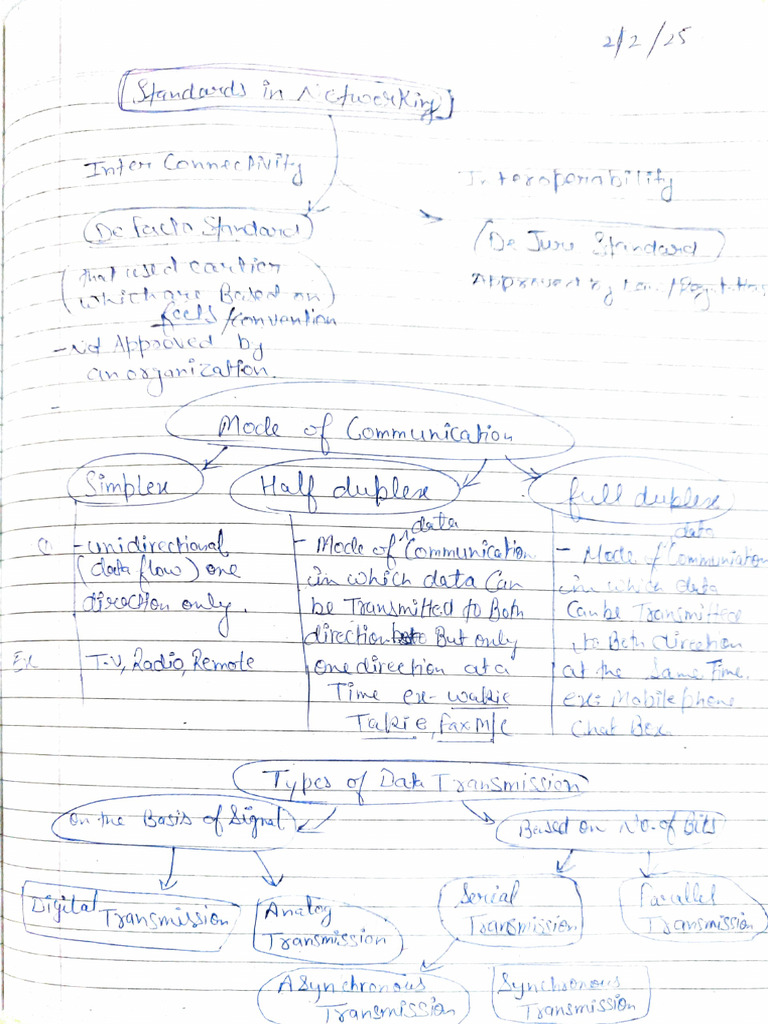 2/2/25
Standards in Networking
Inter Connectivity
Interoperability
De Facto Standard
De Jure Standard
that used earlier
which are Based on
facts/convention
Approved by Law/Regulations
- Not Approved by
an organization.
Mode of Communication
Simplex
Half duplex
full duplex
- unidirectional
(data flow) one
direction only.
Ex T.V, Radio, Remote
data
- Mode of Communication
in which data Can
be Transmitted to Both
direction But only
one direction at a
Time ex- walkie
Takie, fax M/c
data
- Mode of Communiation
in which data
Can be Transmitted
to Both direction
at the Same Time.
ex: Mobile phone
Chat Box
Types of Data Transmission
On the Basis of Signal
Based on No. of Bits
Digital Transmission
Analog
Transmission
Serial
Transmission
Parallel
Transmission
ASynchronous
Transmission
Synchronous
Transmission